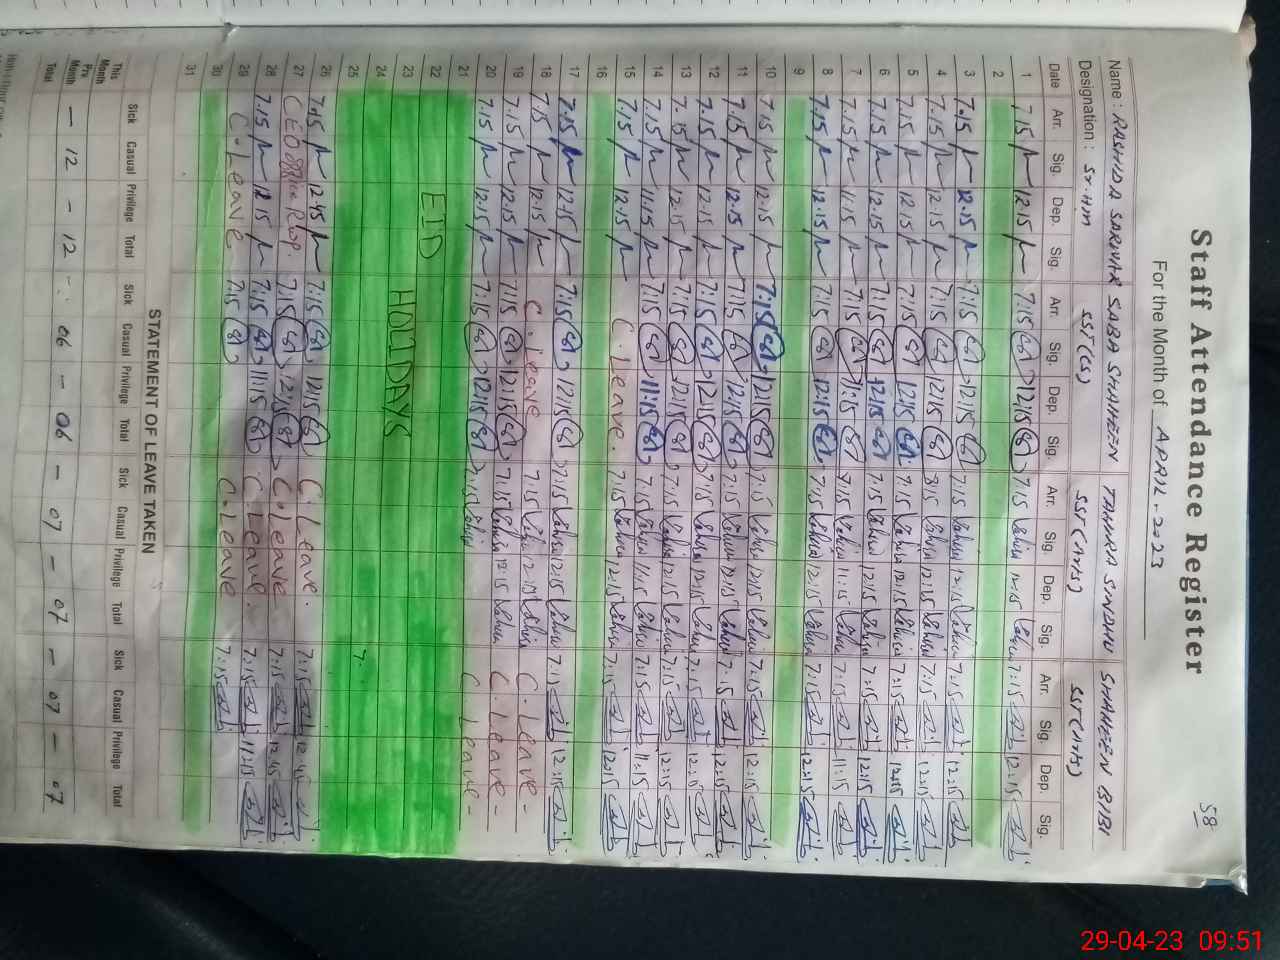 58
Staff Attendance Register
For the Month of APRIL. 2023
Name : RASHIDA SARWAR SABA SHAHEEN TAHIRA SINDHU SHAHEEN BIBI
Designation : Sr. HM SST(CS) SST(Arts) SST(Arts)
Date Arr. Sig. Dep. Sig. Arr. Sig. Dep. Sig. Arr. Sig. Dep. Sig. Arr. Sig. Dep. Sig.
1 7.15 12.15 7:15 12:15 7:15 12:15 7:15 12:15
2
3 7.15 12.15 7:15 12:15 7:15 12:15 7:15 12:15
4 7.15 12.15 7:15 12:15 7:15 12:15 7:15 12:15
5 7.15 12.15 7:15 12:15 7:15 12:15 7:15 12:15
6 7.15 12.15 7:15 12:15 7:15 12:15 7:15 12:15
7 7.15 11.15 7:15 11:15 7:15 11:15 7:15 11:15
8 7.15 12.15 7:15 12:15 7:15 12:15 7:15 12:15
9
10 7.15 12.15 7:15 12:15 7:15 12:15 7:15 12:15
11 7.15 12.15 7:15 12:15 7:15 12:15 7:15 12:15
12 7.15 12.15 7:15 12:15 7:15 12:15 7:15 12:15
13 7.15 12.15 7:15 12:15 7:15 12:15 7:15 12:15
14 7.15 11.15 7:15 11:15 7:15 11:15 7:15 11:15
15 7.15 12.15 C. Leave. 7:15 12:15 7:15 12:15
16
17 7.15 12.15 7:15 12:15 7:15 12:15 7:15 12:15
18 7.15 12.15 C. Leave 7:15 C. Leave -
19 7.15 12.15 7:15 12:15 7:15 12:15 C. Leave -
20 7.15 12.15 7:15 12:15 7:15 C. Leave -
21
22 EID
23 HOLIDAYS
24
25
26 7.15 12.45 7:15 12:15 C. Leave. 7:15 12:45
27 CEO Office Rwp. 7:15 C. Leave 7:15 12:45
28 7.15 12.15 7:15 11:15 C. Leave. 7:15 11:15
29 C. Leave 7:15 C. Leave 7:15
30
31
STATEMENT OF LEAVE TAKEN
Sick Casual Privilege Total Sick Casual Privilege Total Sick Casual Privilege Total Sick Casual Privilege Total
This Month
Prs Month — 12 - 12 - 06 - 06 - 07 - 07 - 07 - 07
Total
29-04-23 09:51